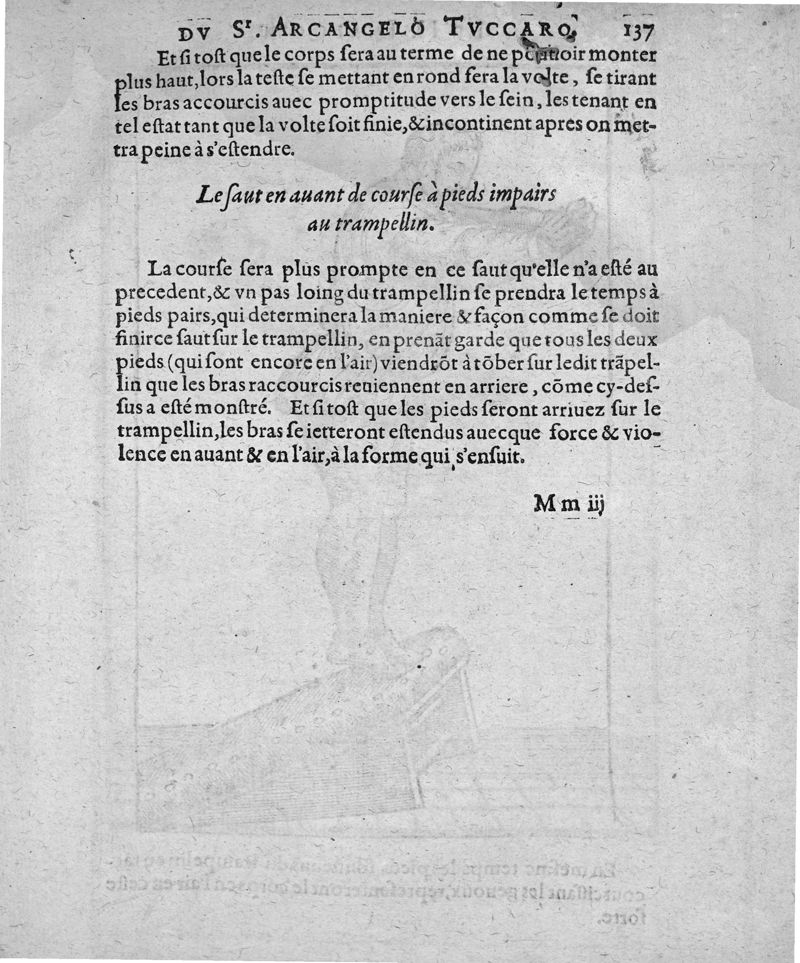 DV Sr. ARCANGELO TVCCARO. 137
Et si tost que le corps sera au terme de ne pouuoir monter
plus haut, lors la teste se mettant en rond sera la volte, se tirant
les bras accourcis auec promptitude vers le sein, les tenant en
tel estat tant que la volte soit finie, & incontinent apres on met-
tra peine à s'estendre.
Le saut en auant de course à pieds impairs
au trampellin.
La course sera plus prompte en ce saut qu'elle n'a esté au
precedent, & vn pas loing du trampellin se prendra le temps à
pieds pairs, qui determinera la maniere & façon comme se doit
finir ce saut sur le trampellin, en prenāt garde que tous les deux
pieds (qui sont encore en l'air) viendrōt à tōber sur ledit trāpel-
lin que les bras raccourcis reuiennent en arriere, cōme cy-des-
sus a esté monstré. Et si tost que les pieds seront arriuez sur le
trampellin, les bras se ietteront estendus auecque force & vio-
lence en auant & en l'air, à la forme qui s'ensuit.
M m iij